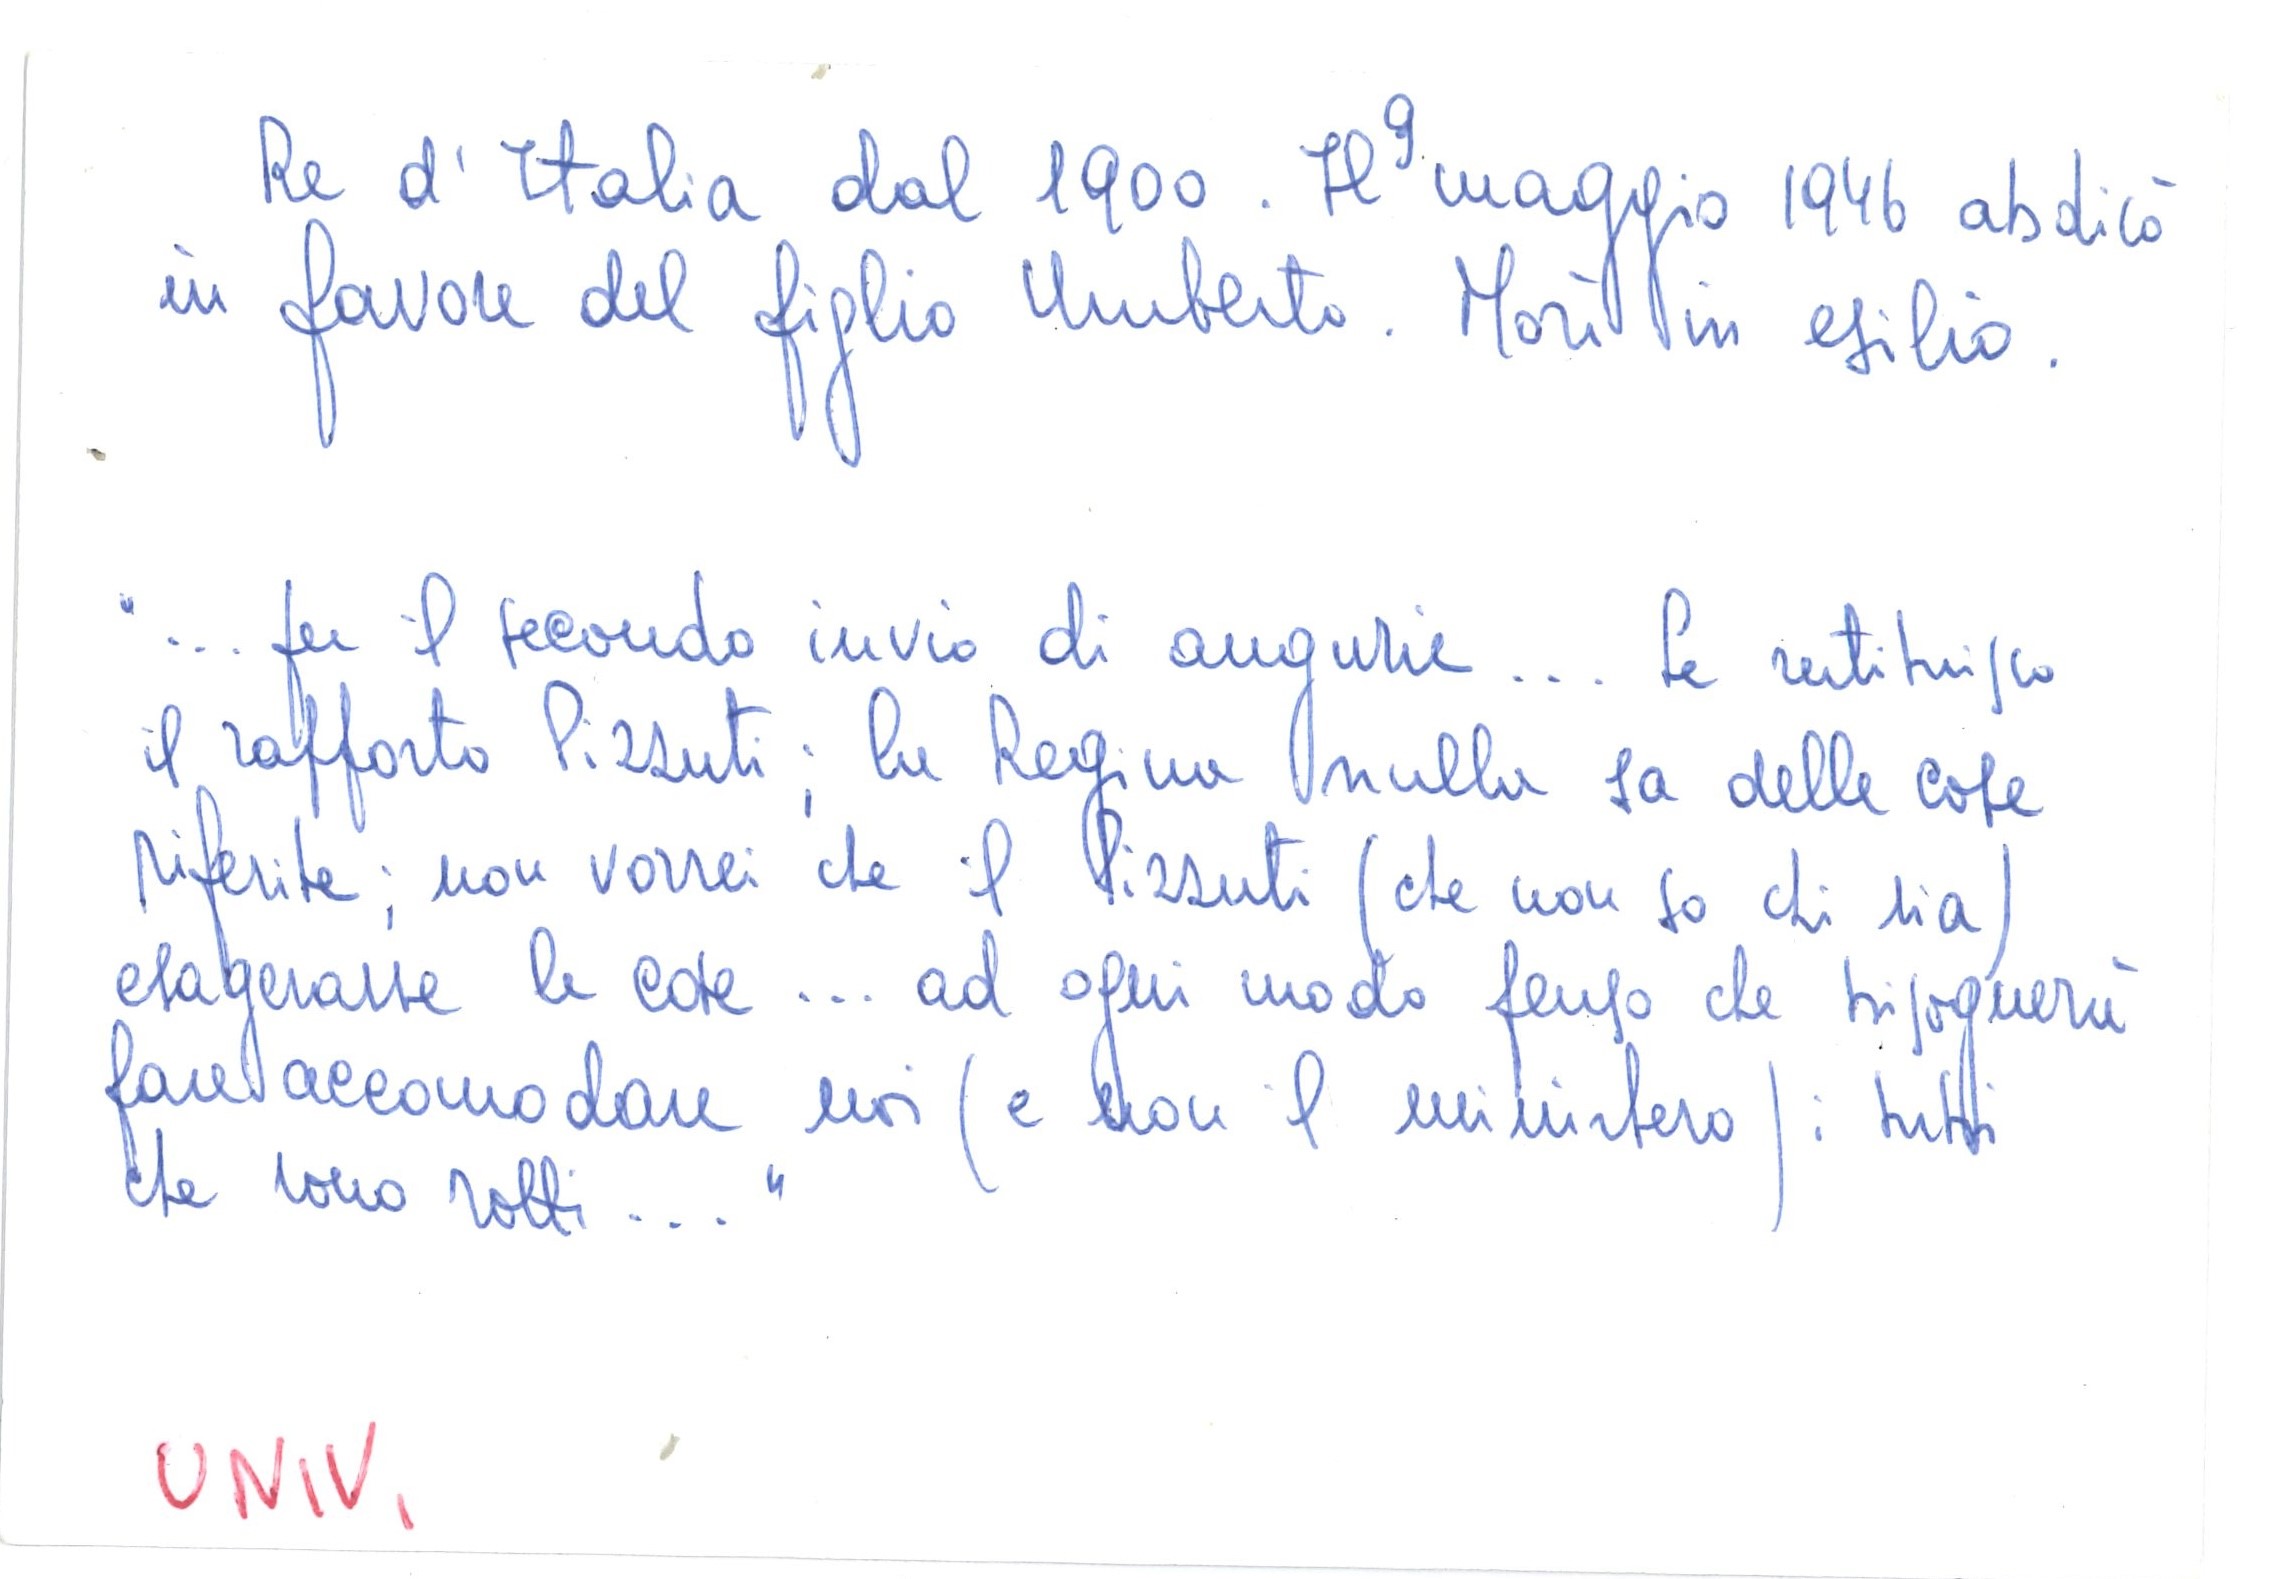 Re d'Italia dal 1900. Il 9 maggio 1946 abdicò
in favore del figlio Umberto. Morì in esilio.
"... per il secondo invio di augurie ... Le restituisco
il rapporto Pizzuti; la Regina nulla sa delle cose
riferite; non vorrei che il Pizzuti (che non so chi sia)
esagerasse le cose ... ad ogni modo penso che bisognerà
fare accomodare noi (e non il ministero): tutti
che sono rotti ..."
UNIV.